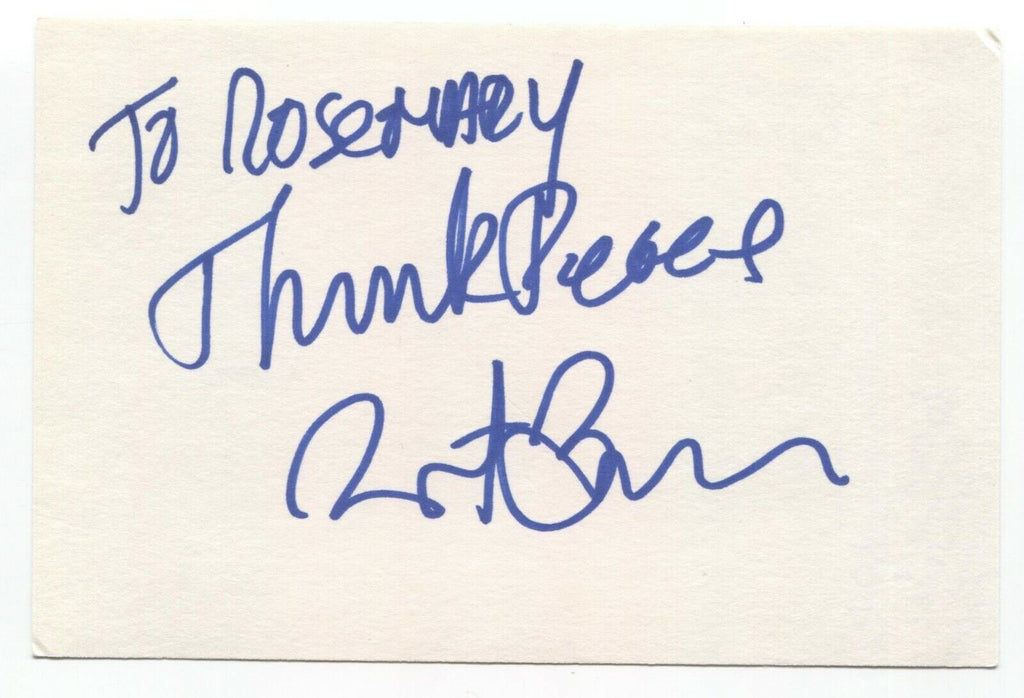 To Rosemary
Think Peace